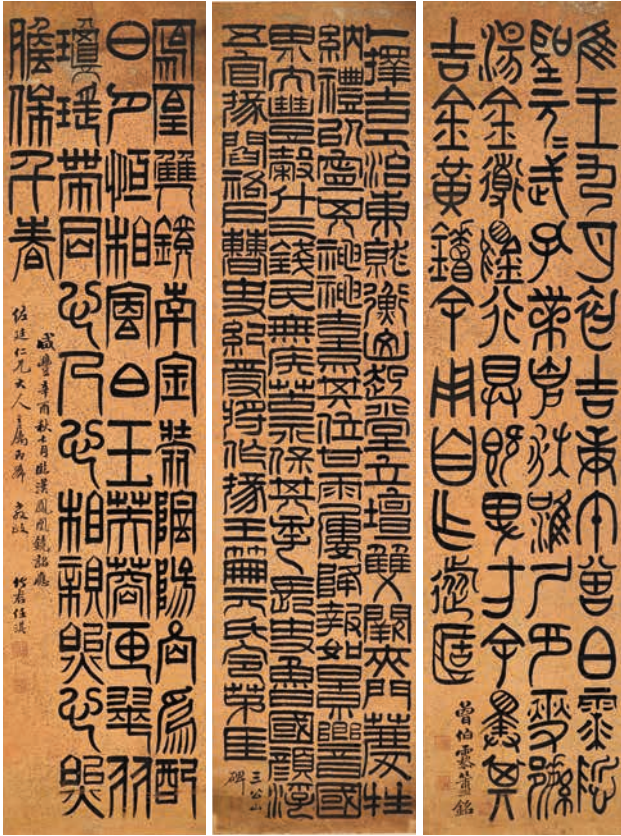 隹王九月初吉庚午曾白霥哲
聖元=武孔黹克狄淮尸印燮繁
湯金道錫行具既卑方余擇其
吉金黃鑪余用自乍旅匜
曾伯霥簠銘
卜擇吉土治東就衡山起堂立壇雙闕夾門薦牲
納禮以寧其神神熹其位甘雨屢降報如景響國
界大豐穀什三錢民無疾苦永保其年長史魯國顏浮
五官掾閻祐戶曹史紀受將作掾王笧元氏令茅匡
三公山
碑
鳳皇雙鏡南金裝陰陽合爲配
日月恒相會白玉芙蓉匣翠羽
瓊瑤帶同心人心相親照心照
膽保千春
咸豐辛酉秋七月臨漢鳳凰鏡銘應
佐廷仁兄大人之屬即希 教政 竹君任淇